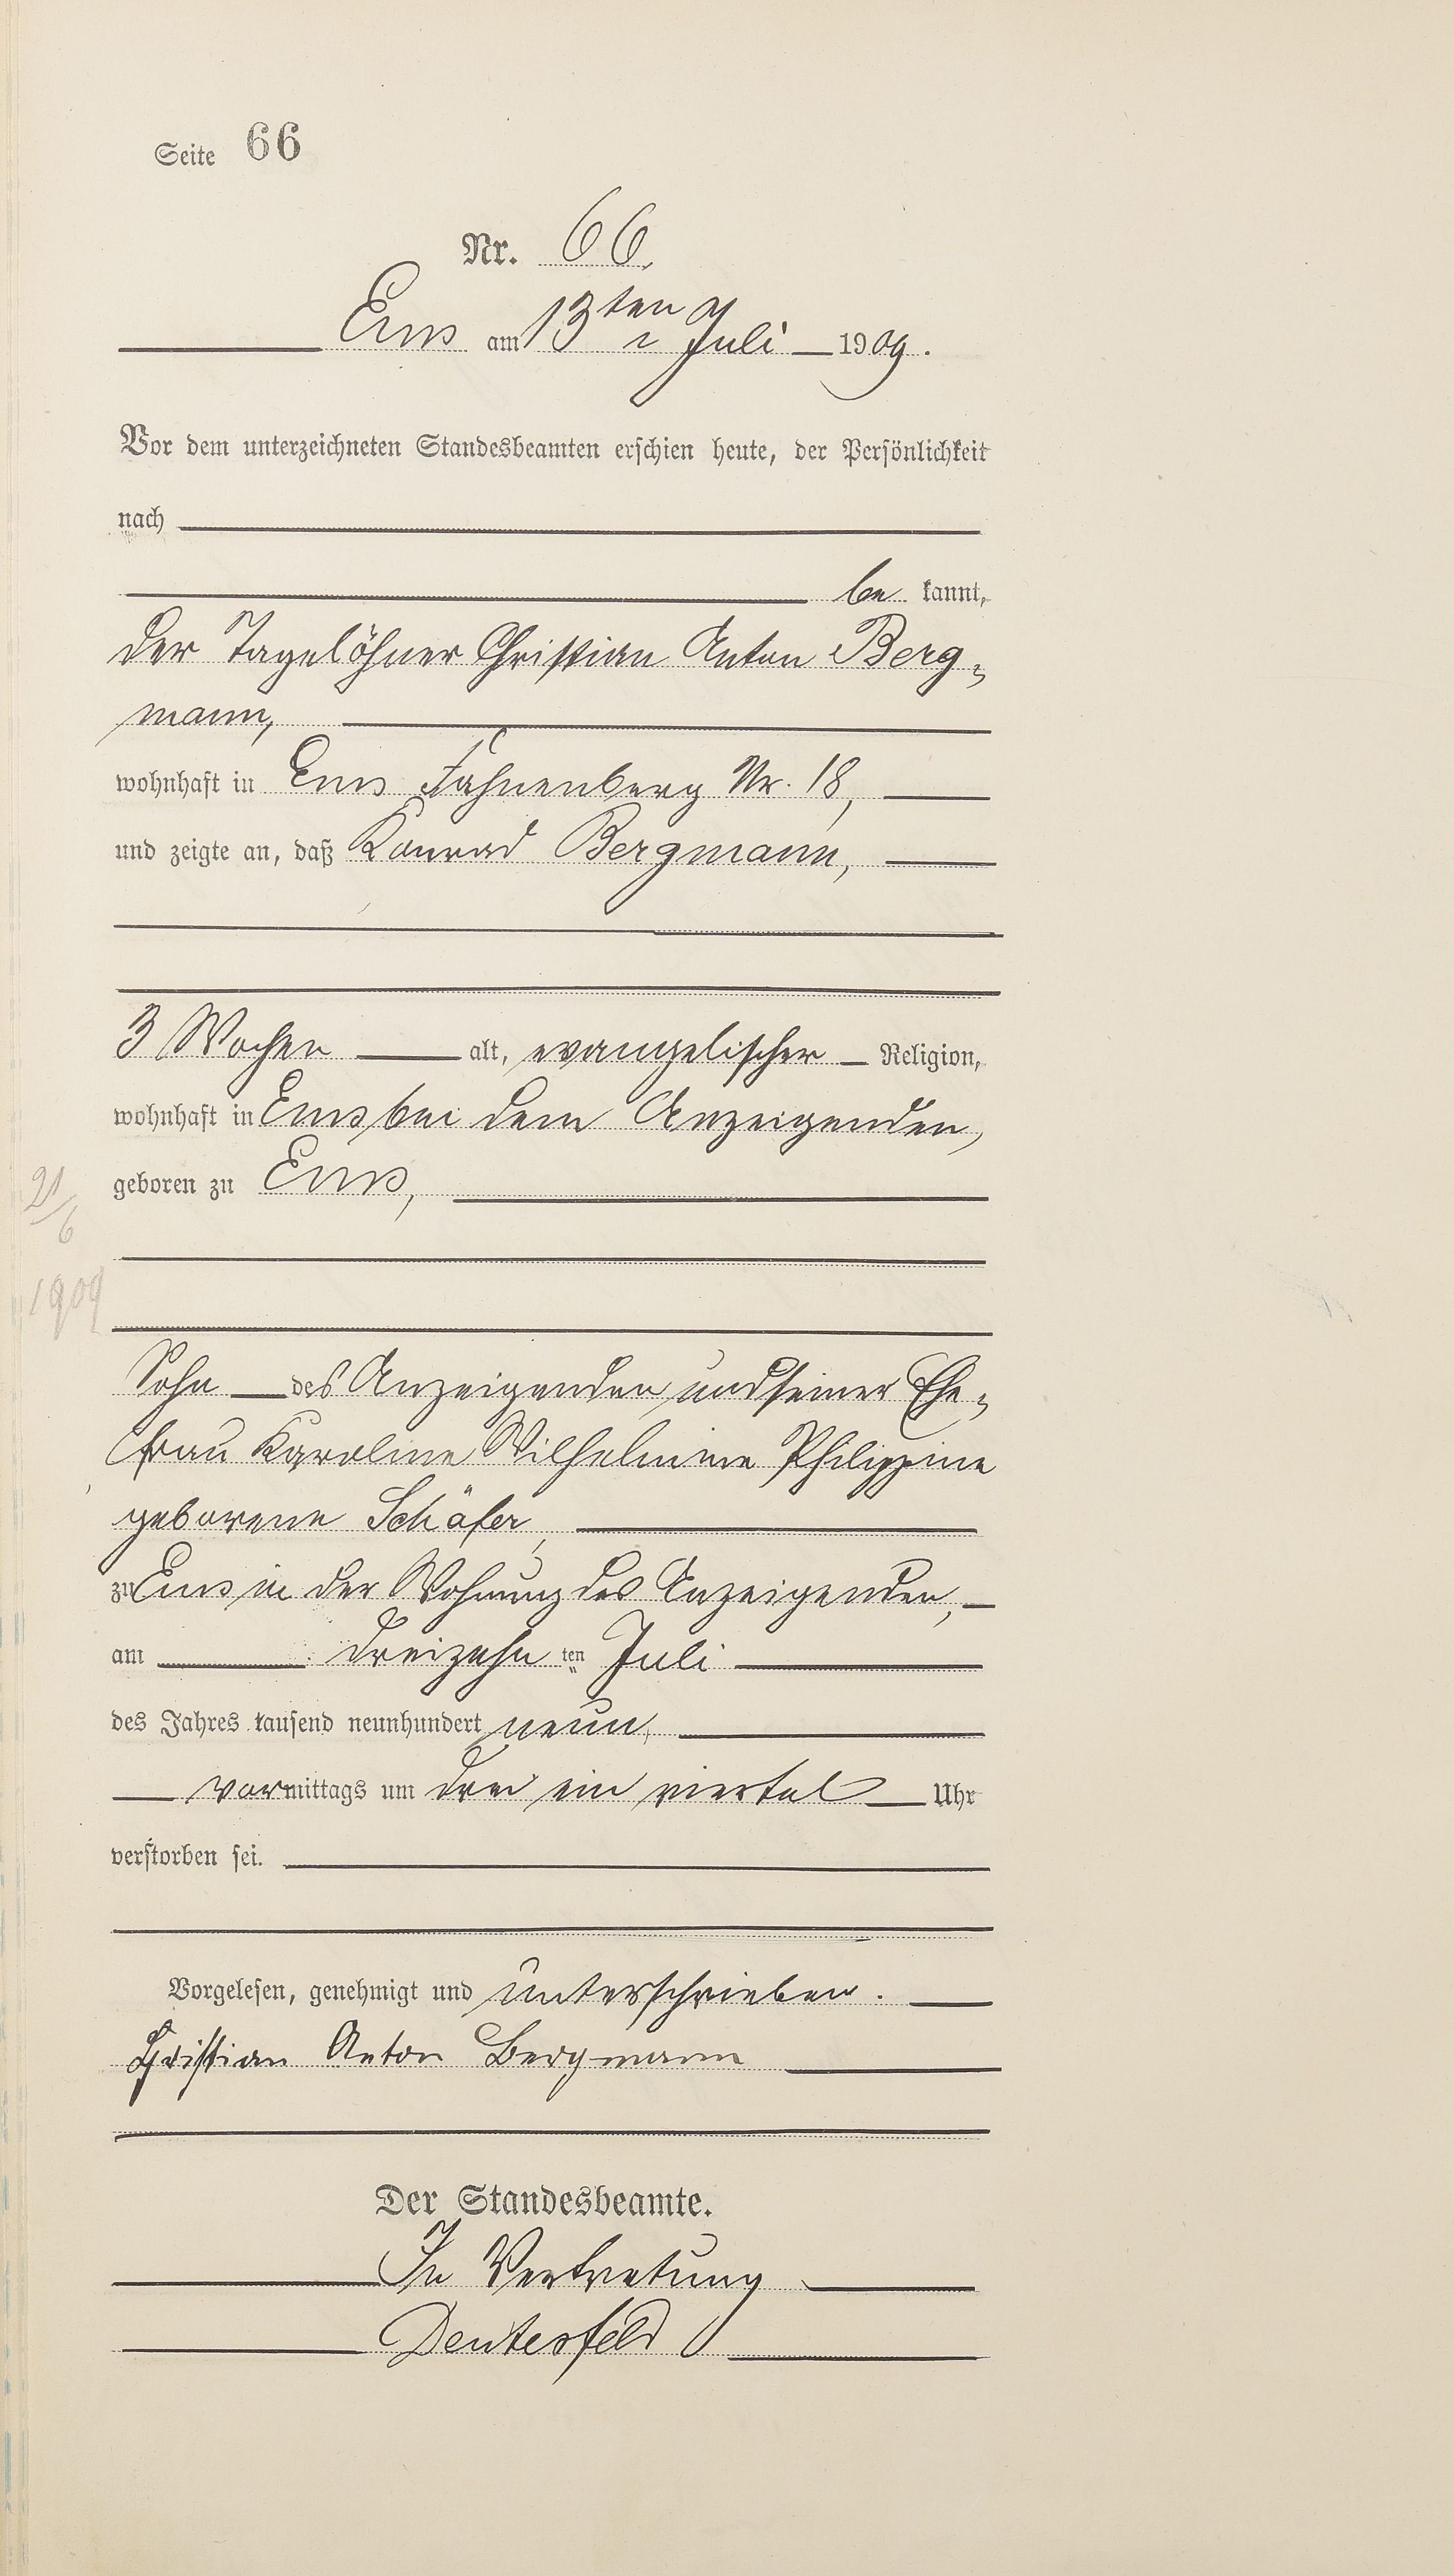 Seite 66
Nr. 66.
Ems am 13ten Juli 1909.
Vor dem unterzeichneten Standesbeamten erschien heute, der Persönlichkeit
nach
be kannt,
der Tagelöhner Christian Anton Berg-
mann,
wohnhaft in Ems Fahnenberg Nr. 18,
und zeigte an, daß Konrad Bergmann,
3 Wochen alt, evangelischer Religion,
wohnhaft in Ems bei dem Anzeigenden,
geboren zu Ems,
21/6
1909
Sohn des Anzeigenden und seiner Ehe-
frau Karoline Wilhelmine Philippine
geborene Schäfer,
zu Ems in der Wohnung des Anzeigenden,
am dreizehn ten Juli
des Jahres tausend neunhundert neun,
vormittags um drei ein viertel Uhr
verstorben sei.
Vorgelesen, genehmigt und unterschrieben.
Christian Anton Bergmann
Der Standesbeamte.
In Vertretung
Deutesfeld